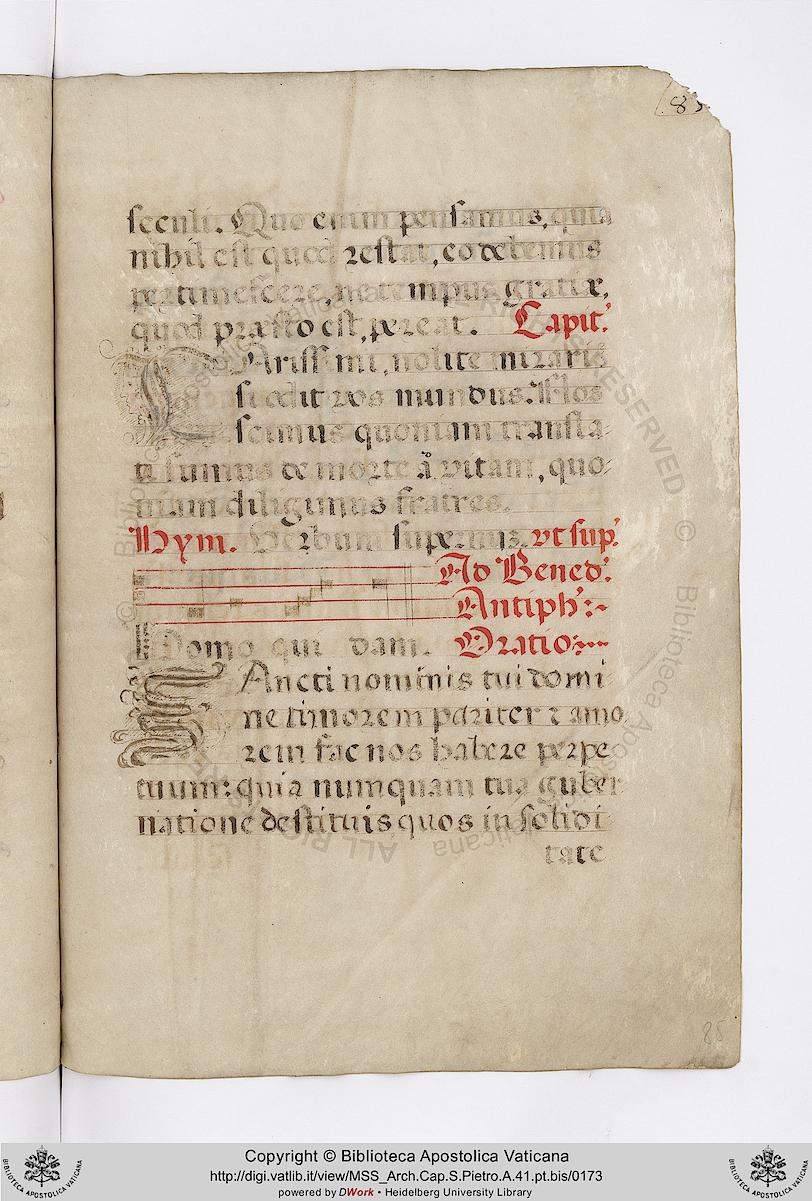 85
seculi. Quo enim pensamus, quia
nihil est quod restat, eo debemus
pertimescere, ne tempus gratiæ,
quod præsto est, pereat. Capit.
CArissimi, nolite mirari
si odit vos mundus. Nos
scimus quoniam transla-
ti sumus de morte à vitam, quo-
niam diligimus fratres.
Hym. Verbum supernuz. vt sup.
Ad Bened.
Antiph:~
Domo qui dam. Oratio:~
SAncti nominis tui domi
ne timorem pariter ⁊ amo
rem fac nos habere perpe
tuum: quia numquam tua guber
natione destituis quos in solidi
tate
85
Copyright © Biblioteca Apostolica Vaticana
http://digi.vatlib.it/view/MSS_Arch.Cap.S.Pietro.A.41.pt.bis/0173
powered by DWork • Heidelberg University Library